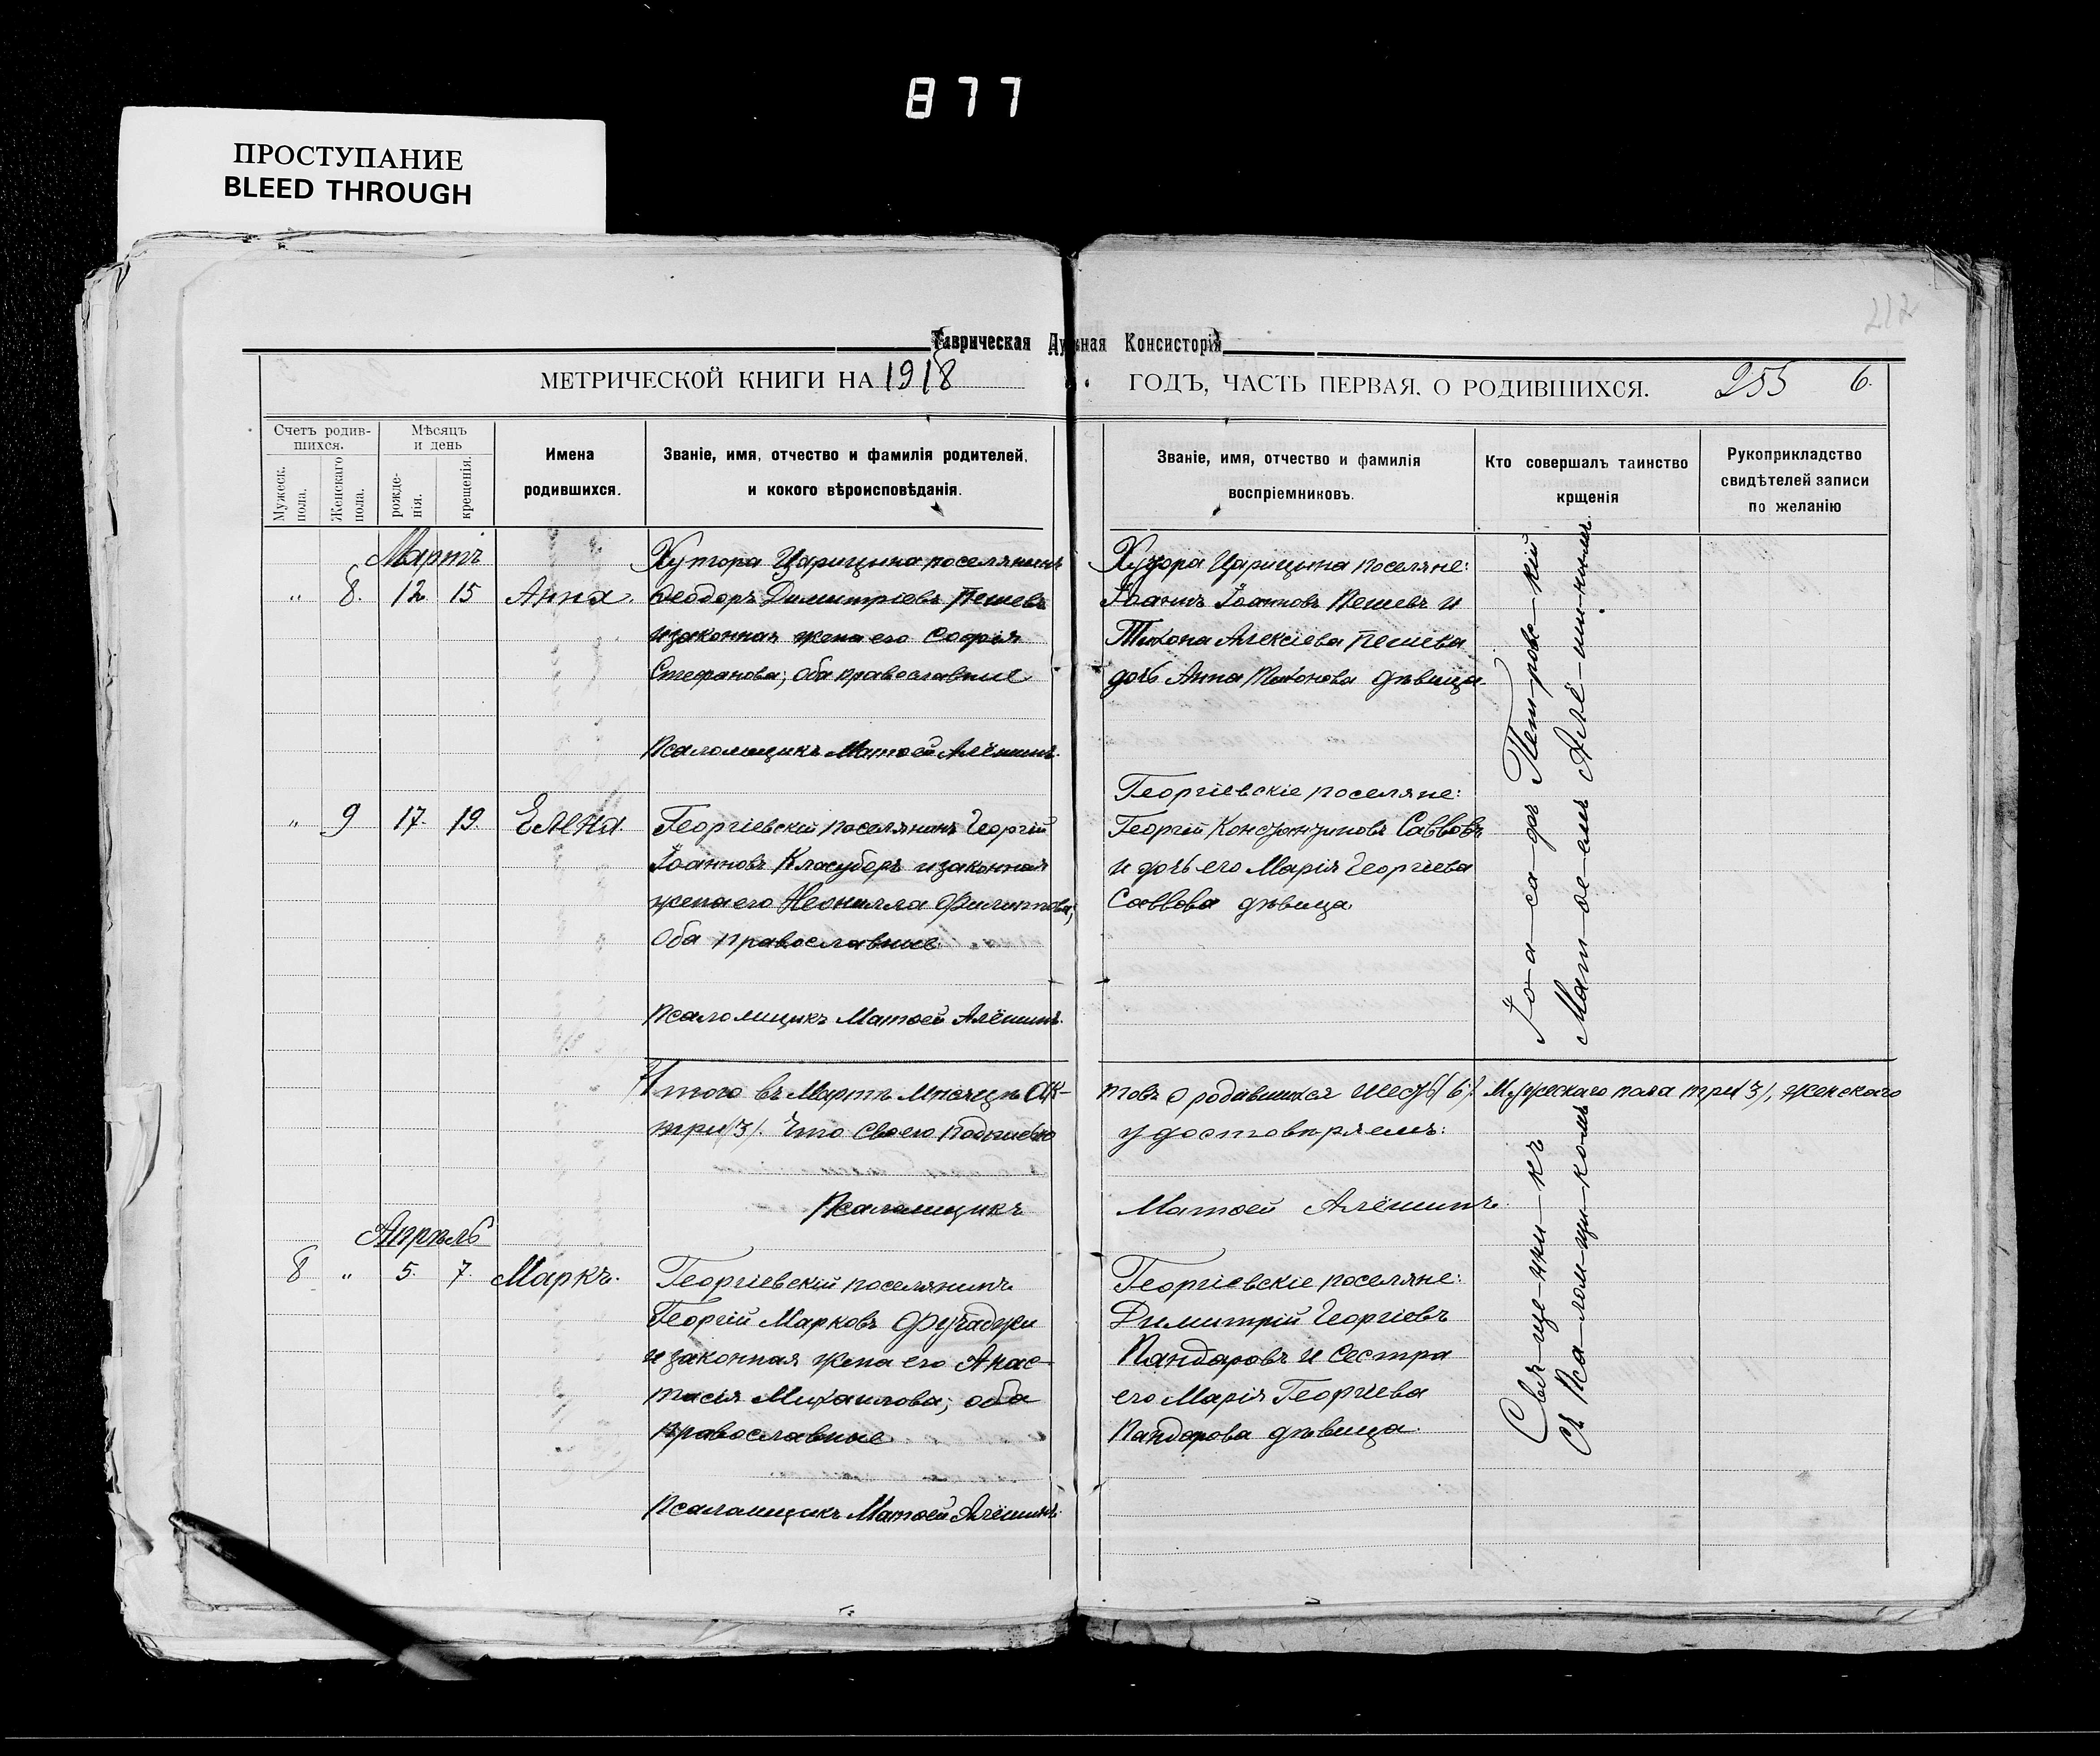 877
ПРОСТУПАНИЕ
BLEED THROUGH
212
Таврическая Духовная Консисторія
МЕТРИЧЕСКОЙ КНИГИ НА 1918 ГОДЪ, ЧАСТЬ ПЕРВАЯ, О РОДИВШИХСЯ. 255 6.
Счетъ родив-
шихся.
Мужеск. пола.
Женскаго пола.
Мѣсяцъ
и день
рожде-
нія.
крещенія.
Имена
родившихся.
Званіе, имя, отчество и фамилія родителей,
и кокого вѣроисповѣданія.
Званіе, имя, отчество и фамилія
воспріемниковъ.
Кто совершалъ таинство
крщенія
Рукоприкладство
свидѣтелей записи
по желанію
Мартъ
" 8. 12 15 Анна.
Хутора Царицына поселянинъ
Ѳеодоръ Димитріевъ Пешевъ
и законная жена его Софія
Стефанова; оба православные
Псаломщикъ Матѳей Алёшинъ.
Хутора Царицына поселяне:
Іоаннъ Іоанновъ Пешевъ и
Тихона Алексіева Пешева
дочь Анна Тихонова дѣвица.
" 9 17. 19. Елена.
Георгіевскій поселянинъ Георгій
Іоанновъ Класуберъ и законная
жена его Неонилла Филиппова;
Оба православные.
Псаломщикъ Матѳей Алёшинъ.
Георгіевскіе поселяне:
Георгій Константиновъ Саввовъ
и дочь его Марія Георгіева
Саввова дѣвица.
Итого въ Мартѣ мѣсяцѣ ак-товъ о родившихся шесть /6/. Мужескаго пола три /3/, женскаго
три /3/. Что своею подписью удостовѣряемъ:
Псаломщикъ Матѳей Алёшинъ.
Апрѣль
8 " 5. 7. Маркъ.
Георгіевскій поселянинъ
Георгій Марковъ Фучаджи
и законная жена его Анас-
тасія Михаилова; оба
православные
Псаломщикъ Матѳей Алёшинъ.
Георгіевскіе поселяне:
Димитрій Георгіевъ
Пандаровъ и сестра
его Марія Георгіева
Пандарова дѣвица.
Свя-ще-нни-къ Іо-а-са-фъ Петров-скій
Съ Пса-лом-щи-комъ Мат-ѳе-емъ Алё-ши-нымъ.